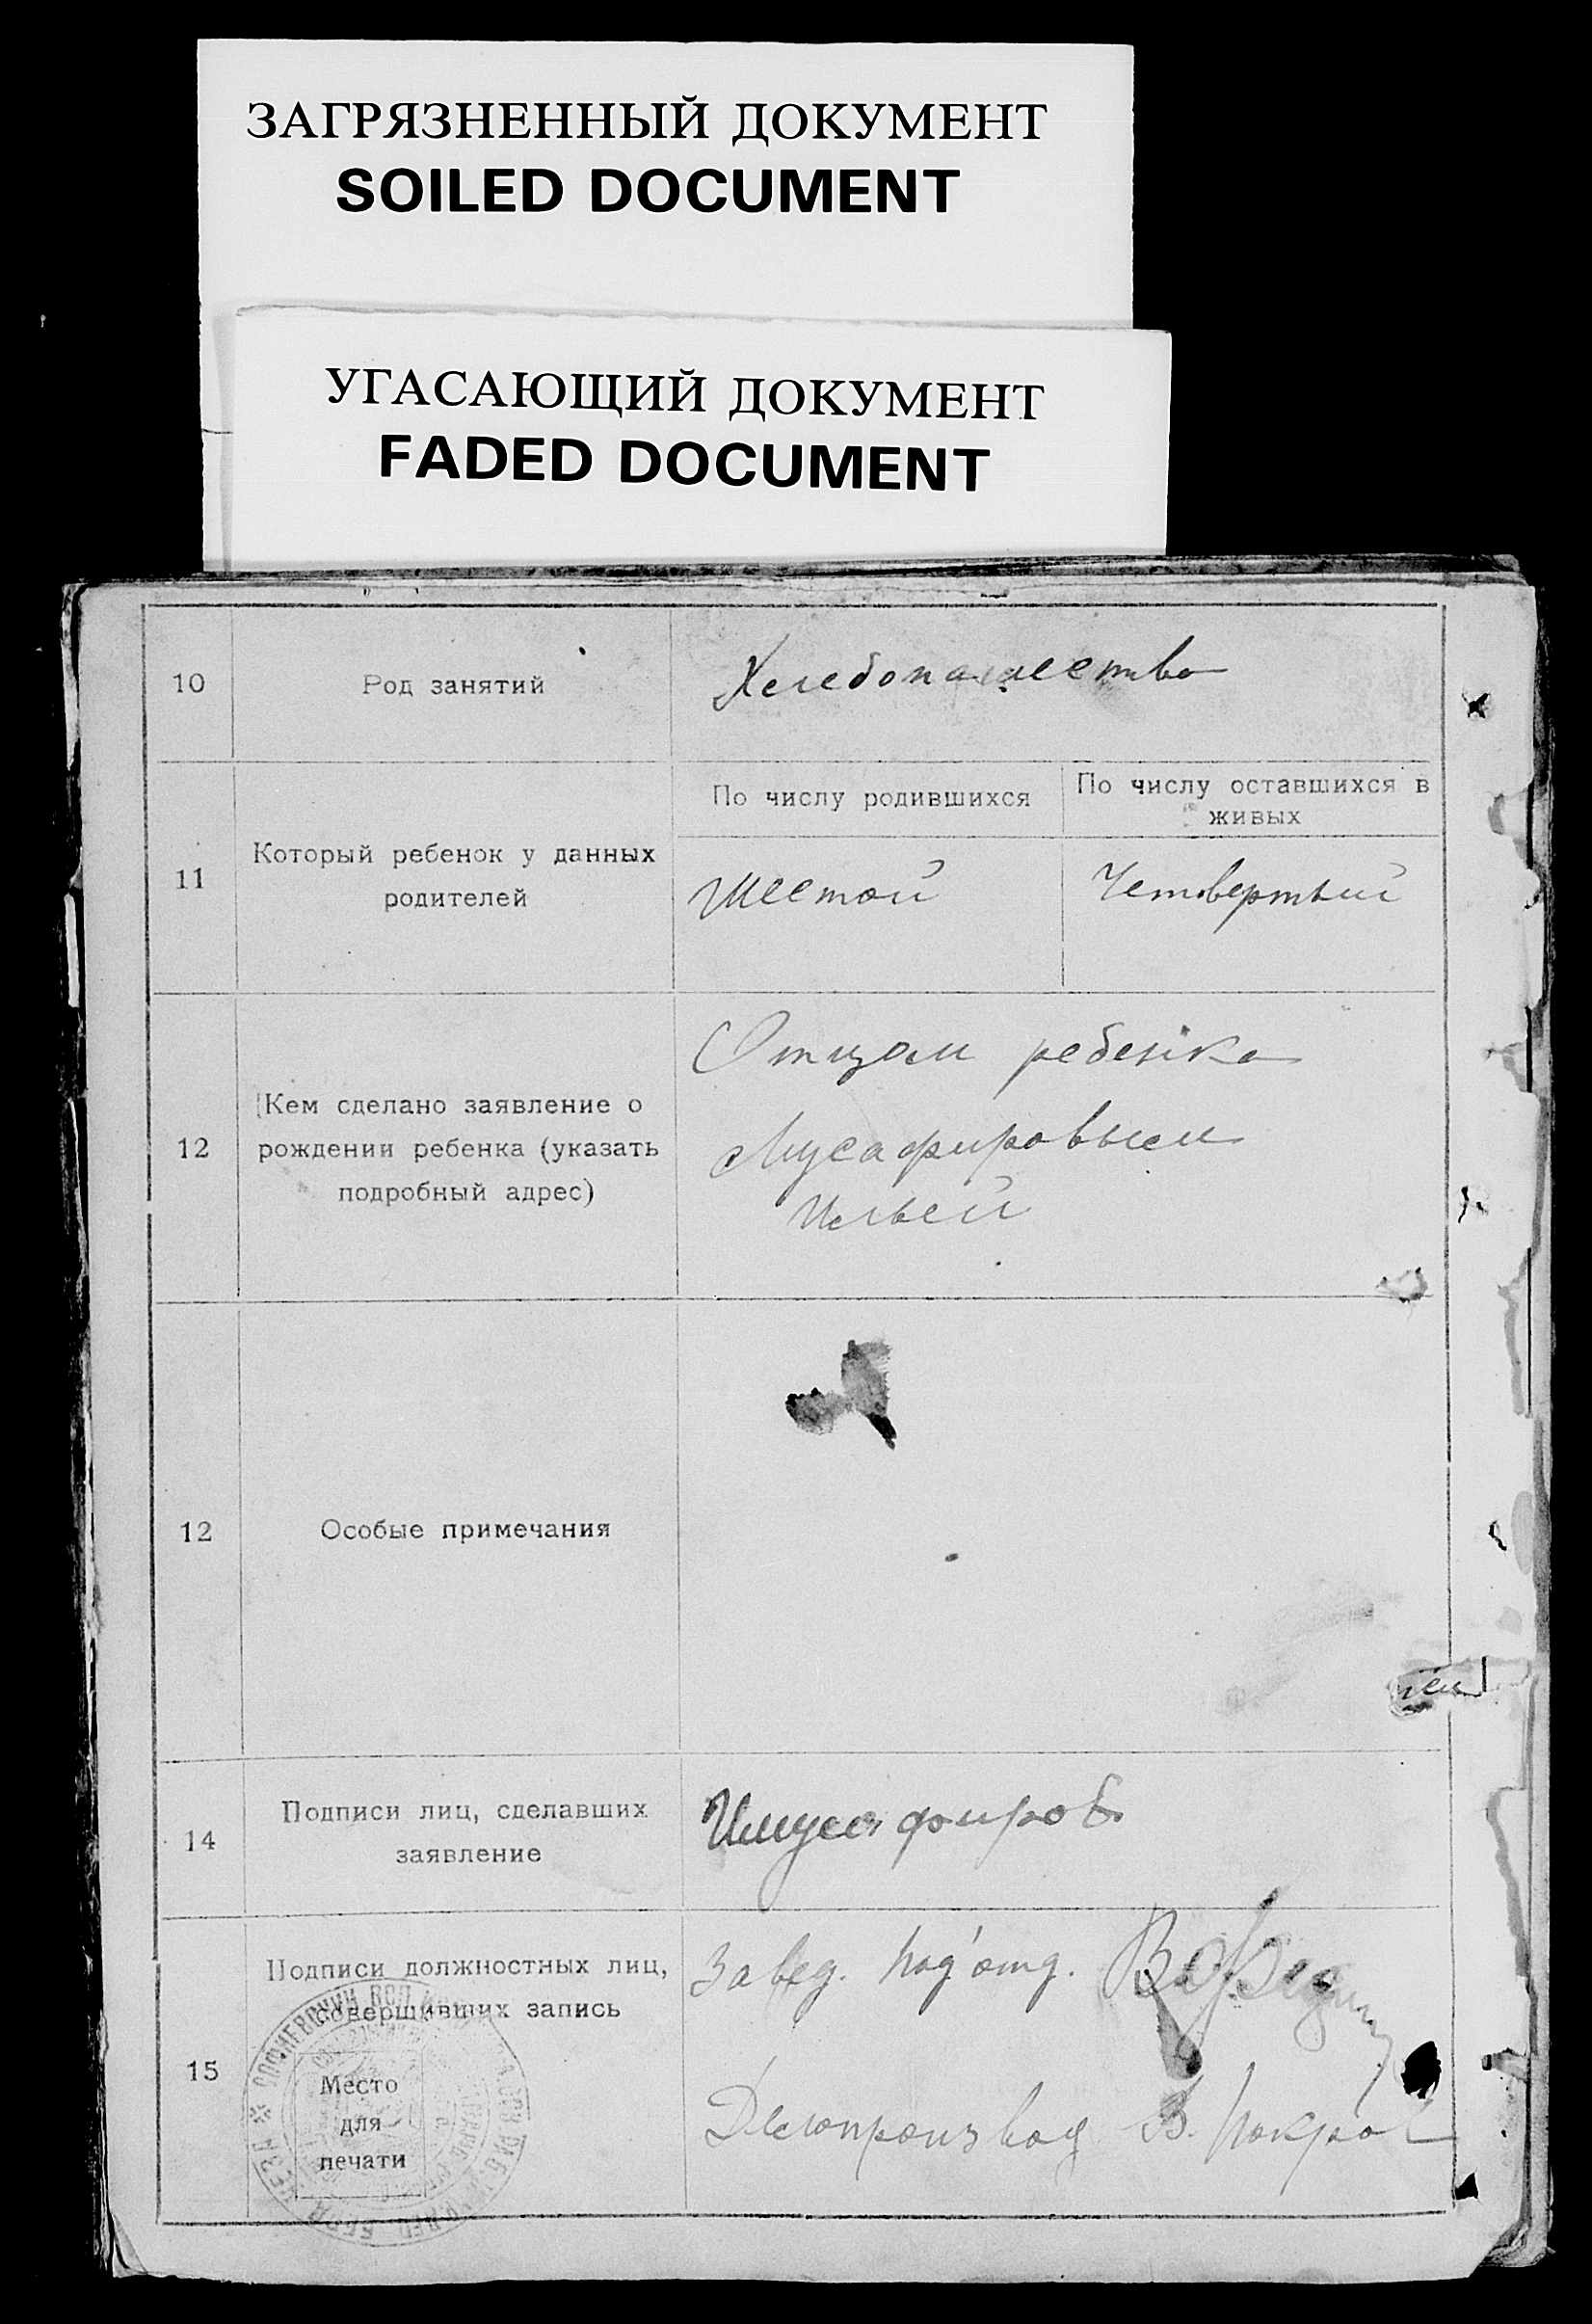 ЗАГРЯЗНЕННЫЙ ДОКУМЕНТ
SOILED DOCUMENT
УГАСАЮЩИЙ ДОКУМЕНТ
FADED DOCUMENT
10
Род занятий
Хлебопашество
11
Который ребенок у данных
родителей
По числу родившихся
Шестой
По числу оставшихся в
живых
Четвертый
12
Кем сделано заявление о
рождении ребенка (указать
подробный адрес)
Отцом ребенка
Мусафировым
Ильей
12
Особые примечания
14
Подписи лиц, сделавших
заявление
Имусафиров
15
Подписи должностных лиц,
совершивших запись
Место
для
печати
Завед. под'отд.
Делопроизвод В. Покров
СОФИЕВСКИЙ ВОЛ